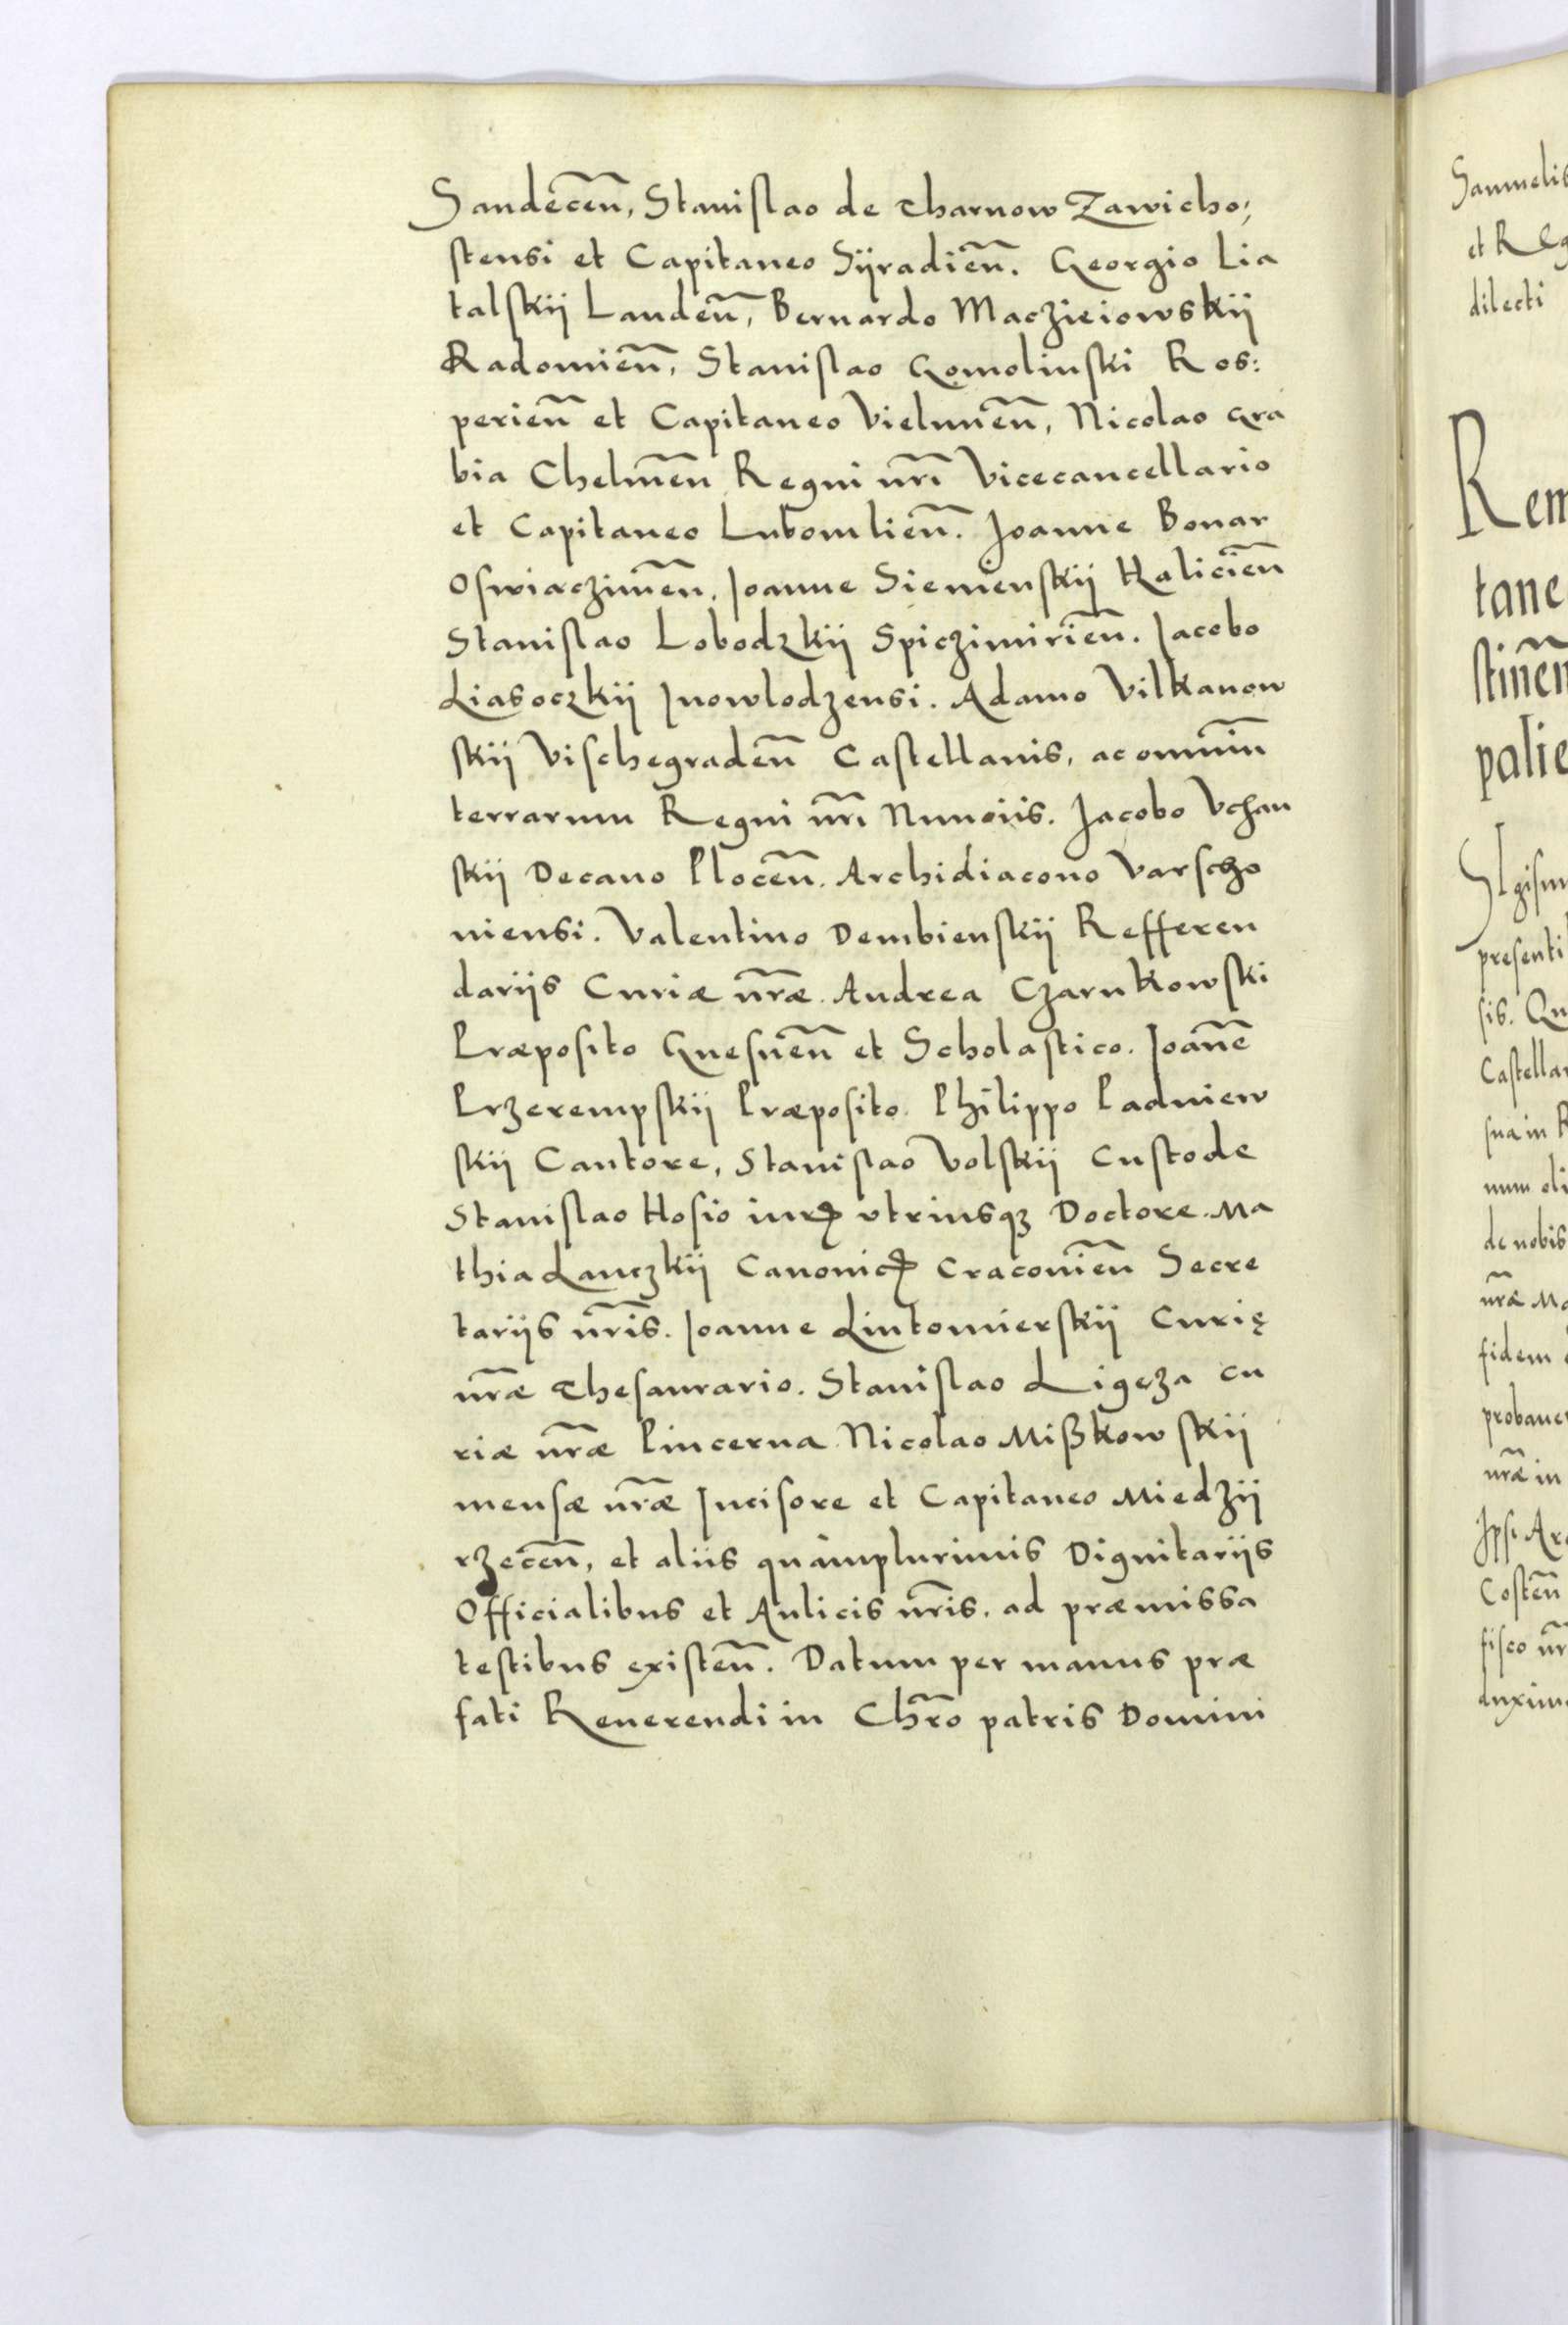 Sandecen̄, Stanislao de Tharnow Zawicho;
stensi et Capitaneo Sÿradien̄. Georgio Lia
talskÿ Landen̄, Bernardo Maczieiowskÿ
Radomien̄, Stanislao Gomolinski Ros:
perien̄ et Capitaneo Vielunen̄, Nicolao Gra
bia Chelmen̄ Regni nr̄i Vicecancellario
et Capitaneo Lubomlien̄. Joanne Bonar
Oswiaczimen̄, Joanne Siemienskÿ Halicien̄
Stanislao Lobodzkÿ Spiczimirien̄. Jacobo
Liasoczkÿ Inowlodzensi. Adamo Vilkanow
skÿ Vischegraden̄ Castellanis, ac omniū
terrarum Regni nr̄i Nunciis. Jacobo Vchan
skÿ Decano Plocen̄. Archidiacono Varscho
niensi. Valentino Dembienskÿ Refferen
darÿs Curiæ nr̄æ. Andrea Czarnkowski
Præposito Gnesnen̄ et Scholastico. Joan̄e
Przerempskÿ Præposito. Philippo Padniew
skÿ Cantore, Stanislao Volskÿ Custode
Stanislao Hosio iurꝭ vtriusqꝫ Doctore. Ma
thia Lanczkÿ Canonicꝭ Cracovien̄ Secre
tarÿs nr̄is. Joanne Lutomierskÿ Curię
nr̄æ Thesaurario. Stanislao Ligeza cu
riæ nr̄æ Pincerna. Nicolao Mißkowskÿ
mensæ nr̄æ Incisore et Capitaneo Miedzÿ
rzecen̄, et aliis quàmplurimis Dignitarÿs
Officialibus et Aulicis nr̄is. ad præmissa
testibus existen̄. Datum per manus præ
fati Reuerendi in Chr̄o patris Domini
et Reg
dilecti
Rem
tane
stinen̄
palie
presenti
sis. Qu
Castellan
sua in R
num oli
de nobis
nr̄æ Ma
fidem
probauer
nr̄æ in
Costen̄
fisco nr̄
duximu